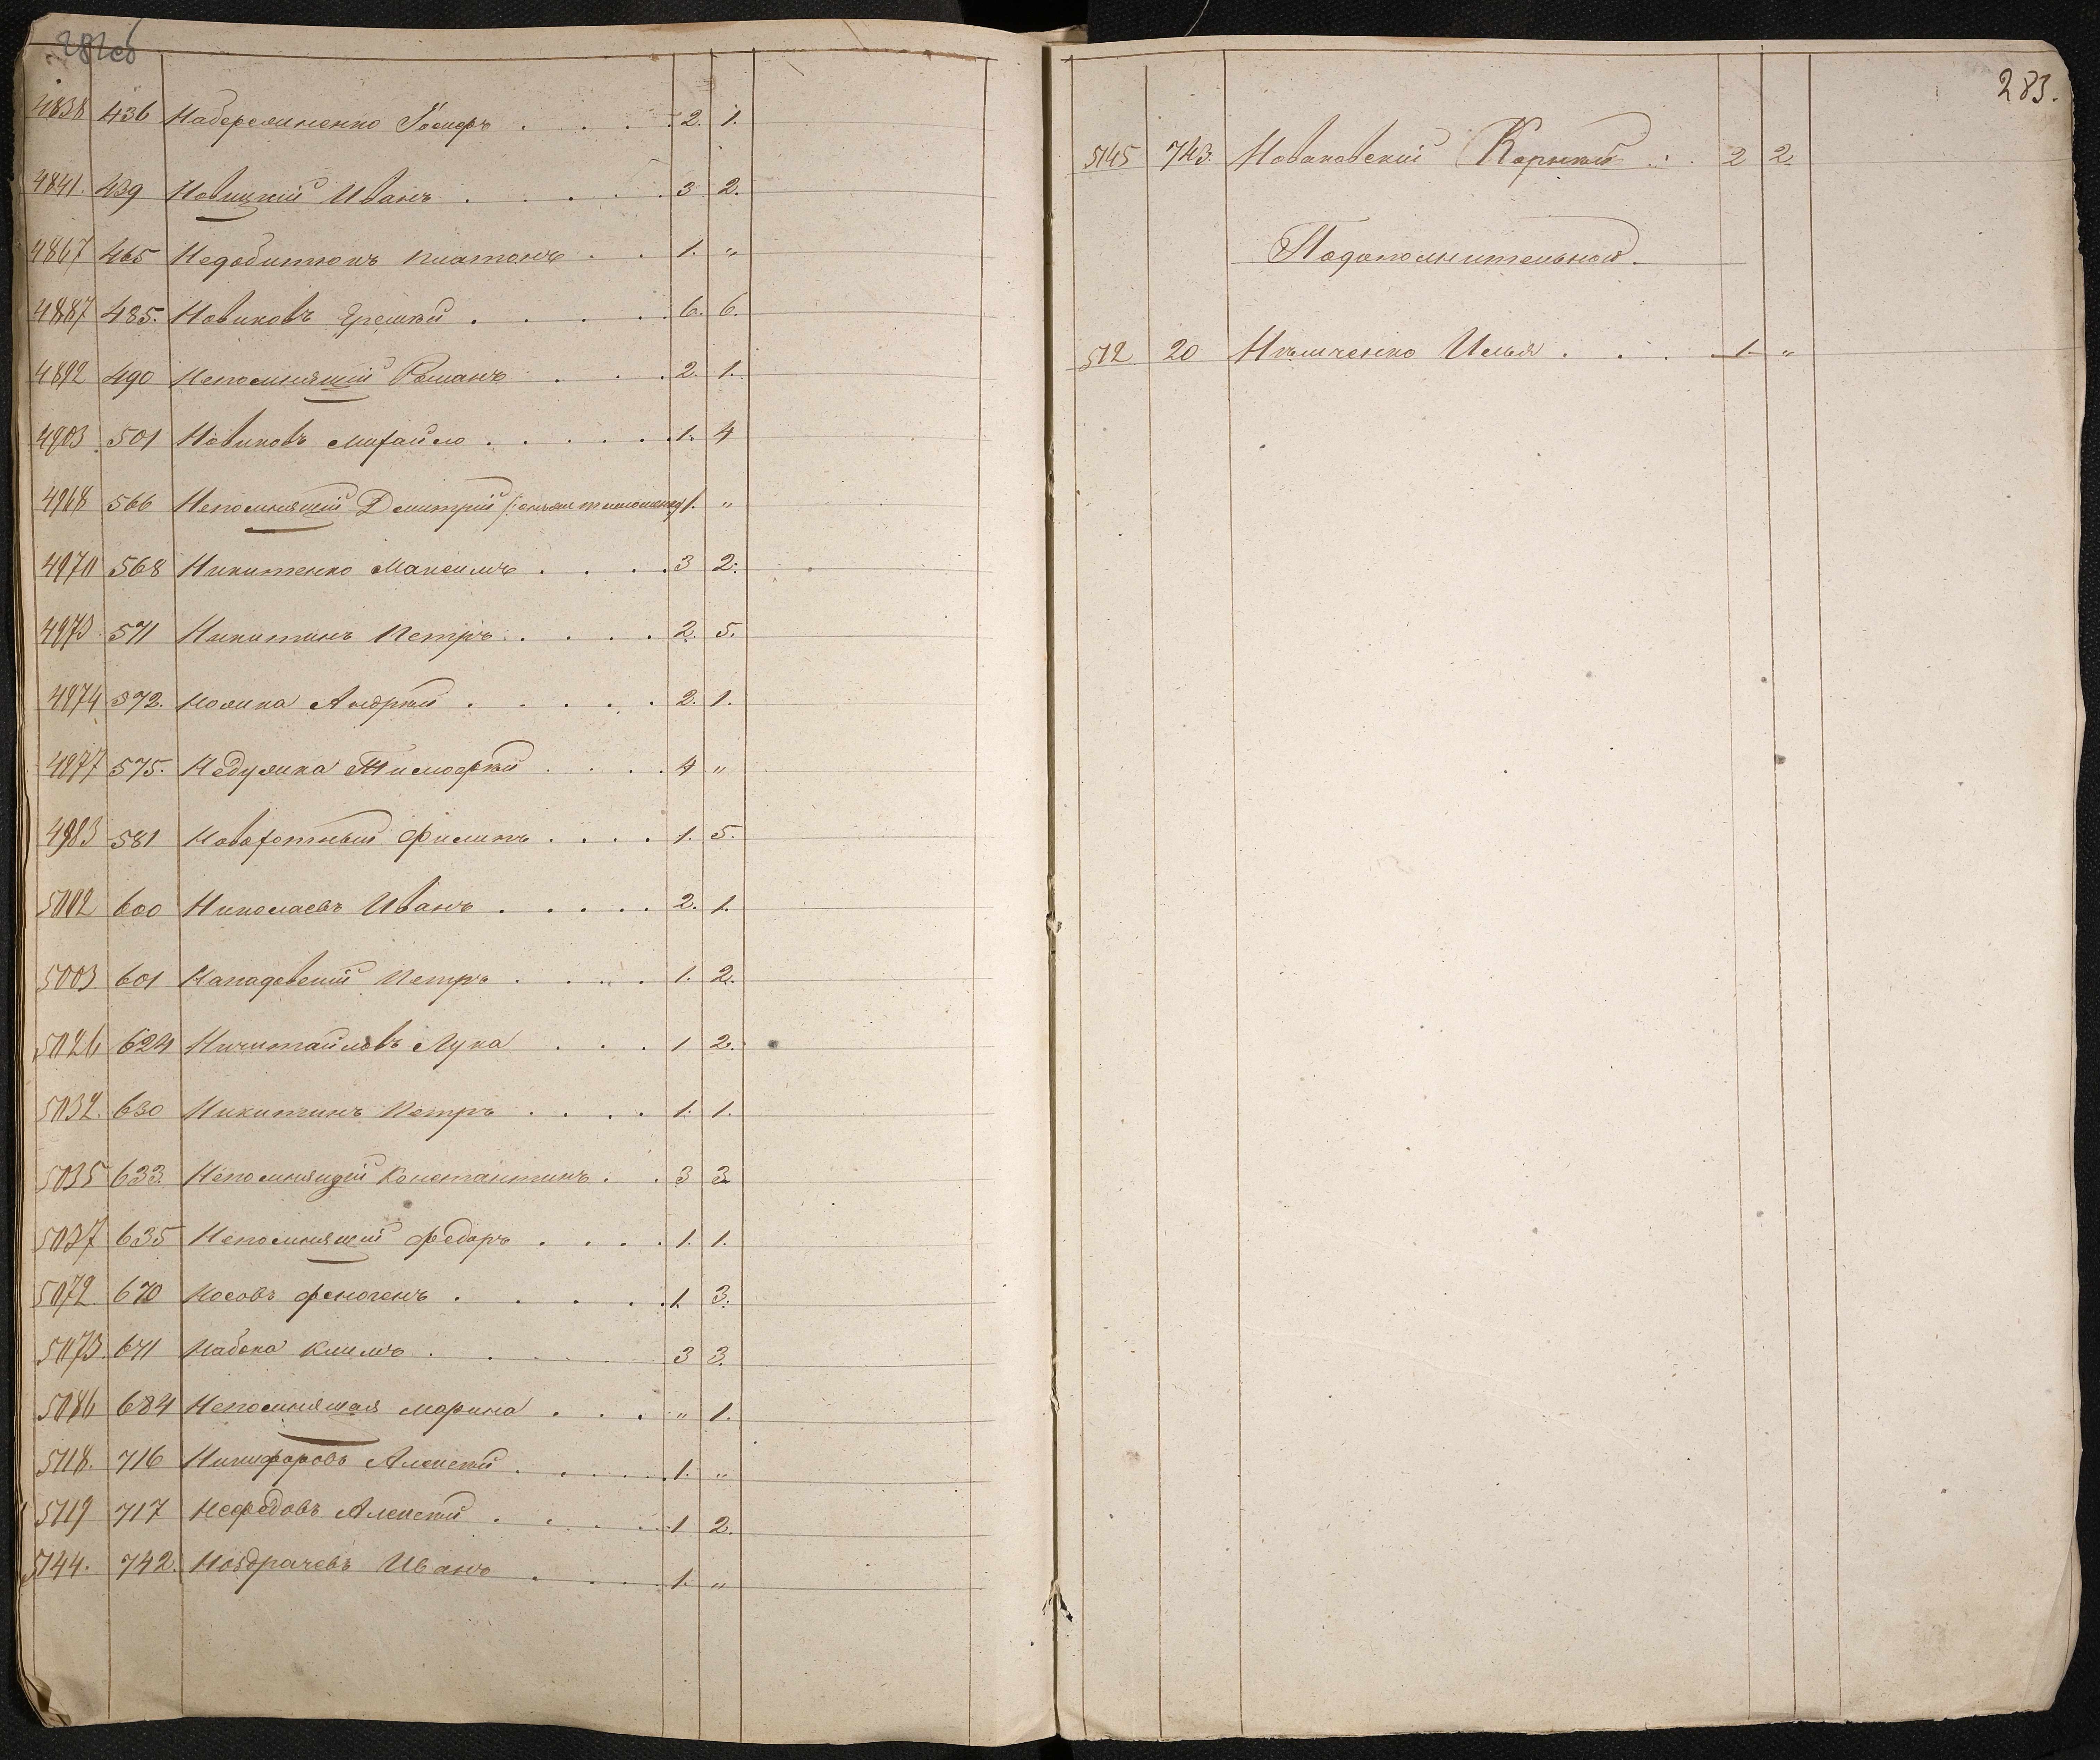 282об
4838 436 Набережненко Іосифъ . . . . 2. 1.
4841. 439 Новицкій Иванъ . . . . . 3 2.
4867 465 Недобитюкъ Платонъ . . 1. „
4887 485. Новиковъ Ермѣй . . . . 6. 6.
4892 490 Непомнящій Романъ . . . 2. 1.
4903 501 Новиковъ Михайло . . . . . 1. 4
4968 566 Непомнящій Дмитрій 1. „
4970 568 Никитенко Максимъ . . . . 3 2.
4973 571 Никитинъ Петръ . . . . 2. 5.
4974 572. Андрѣй . . . . . 2. 1.
4977 575. Тимофѣй . . . . 4 „
4983 581 Новохотный Филипъ . . . . 1. 5.
5002 600 Николаевъ Иванъ . . . . . 2. 1.
5003 601 Нападовскій Петръ . . . . 1. 2.
5026 624 Ничитайловъ Лука . . . 1 2.
5032. 630 Никитинъ Петръ . . . . 1. 1.
5035 633. Непомнящій Константинъ . . 3 3
5037 635 Непомнящій Федоръ . . . . 1. 1.
5072. 670 Носовъ Феногенъ . . . . . 1. 3.
5073. 671 Набока Климъ . . . 3 3.
5086 684 Непомнящая Марина . . . „ 1.
5118. 716 Никифоровъ Алексѣй . . . . . 1. „
5119 717 Нефедовъ Алексѣй . . . . . 1 2.
5144. 742. Ноздрачевъ Иванъ . . . . 1. „
283.
5145 743. Новаковскій Корнѣй . . 2 2.
Подополнительной
512 20 Нѣмченко Илья . . . . 1. „